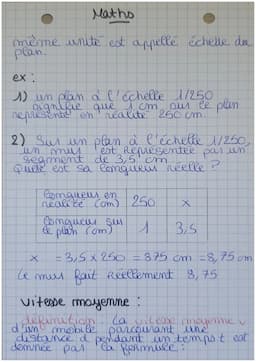 Maths
même unité est appellé échelle du
plan.
ex :
1) un plan à l'échelle 1/250
signifie que 1 cm sur le plan
représente en réalité 250 cm.
2) Sur un plan à l'échelle 1/250,
un mur est représentée par un
segment de 3,5 cm
Quelle est sa longueur réelle ?
Longueur en
réalité (cm) 250 x
Longueur sur
le plan (cm) 1 3,5
x = 3,5 x 250 = 875 cm = 8,75 cm
Le mus fait réellement 8,75
vitesse moyenne :
définition : La vitesse moyenne v
d'un mobile parcourant une
distance d pendant un temps t est
donnée par la formule :